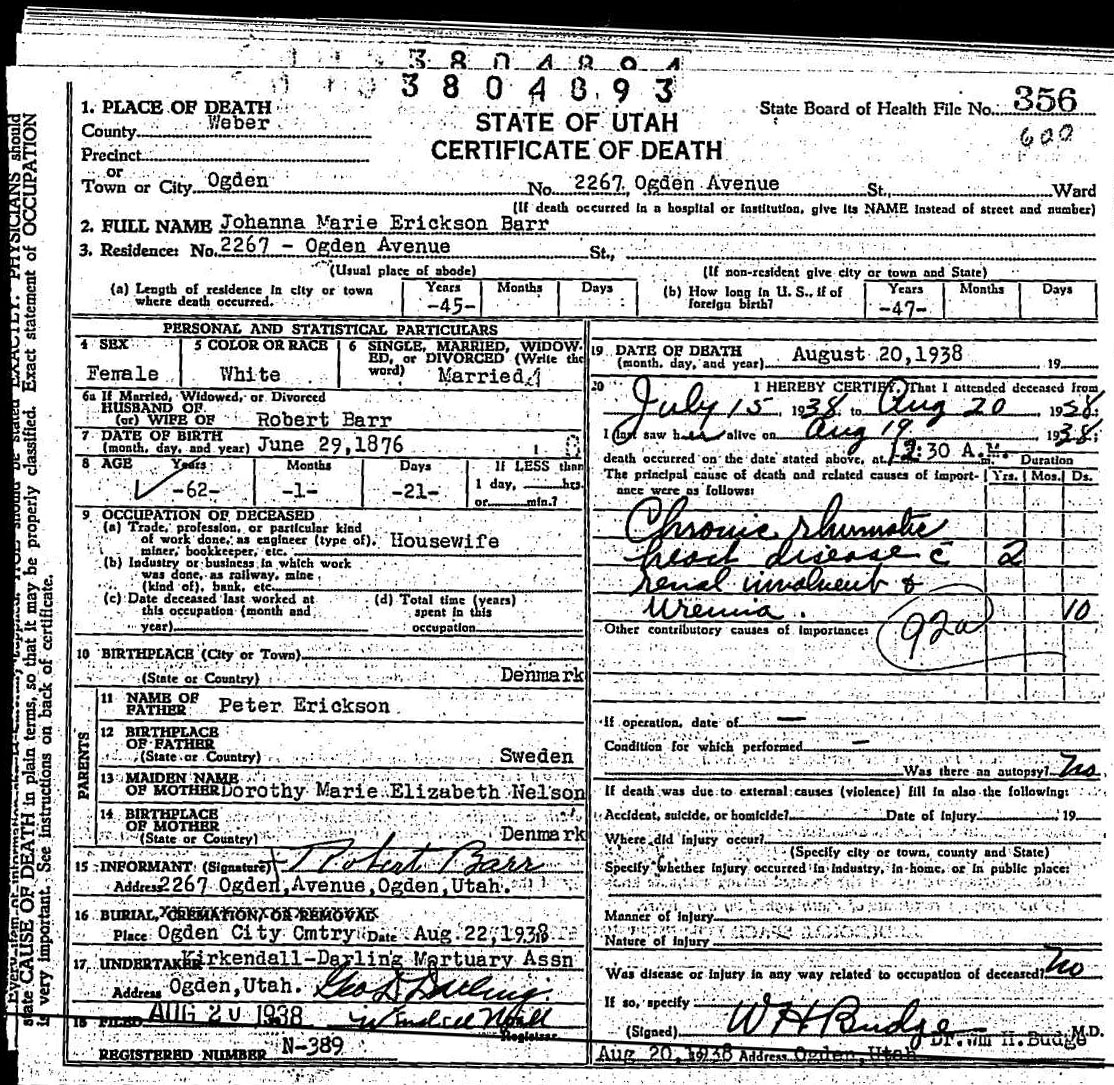 3804894
3804893
1. PLACE OF DEATH
County Weber
Precinct
or
Town or City Ogden
STATE OF UTAH
CERTIFICATE OF DEATH
State Board of Health File No. 356
600
No. 2267 Ogden Avenue St. Ward
(If death occurred in a hospital or institution, give its NAME instead of street and number)
2. FULL NAME Johanna Marie Erickson Barr
3. Residence: No. 2267 - Ogden Avenue St.,
(Usual place of abode)
(If non-resident give city or town and State)
(a) Length of residence in city or town where death occurred. Years -45- Months Days
(b) How long in U. S., if of foreign birth? Years -47- Months Days
PERSONAL AND STATISTICAL PARTICULARS
4 SEX Female
5 COLOR OR RACE White
6 SINGLE, MARRIED, WIDOWED, or DIVORCED (Write the word) Married
6a If Married, Widowed, or Divorced
HUSBAND OF
(or) WIFE OF Robert Barr
7 DATE OF BIRTH
(month, day, and year) June 29,1876
8 AGE Years -62- Months -1- Days -21- If LESS than
1 day, hrs.
or min.?
9 OCCUPATION OF DECEASED
(a) Trade, profession, or particular kind
of work done, as engineer (type of),
miner, bookkeeper, etc. Housewife
(b) Industry or business in which work
was done, as railway, mine
(kind of), bank, etc.
(c) Date deceased last worked at
this occupation (month and
year)
(d) Total time (years)
spent in this
occupation
10 BIRTHPLACE (City or Town)
(State or Country) Denmark
PARENTS
11 NAME OF
FATHER Peter Erickson
12 BIRTHPLACE
OF FATHER
(State or Country) Sweden
13 MAIDEN NAME
OF MOTHER Dorothy Marie Elizabeth Nelson
14 BIRTHPLACE
OF MOTHER
(State or Country) Denmark
15 INFORMANT (Signature) Robert Barr
Address 2267 Ogden,Avenue,Ogden,Utah.
16 BURIAL, CREMATION, OR REMOVAL
Place Ogden City Cmtry Date Aug. 22,1938
17 UNDERTAKER Kirkendall-Darling Mortuary Assn
Address Ogden,Utah. Geo D Darling
18 FILED AUG 20 1938
Registrar
REGISTERED NUMBER N-389
19 DATE OF DEATH
(month, day, and year) August 20,1938 19
20 I HEREBY CERTIFY, That I attended deceased from
July 15 1938 to Aug 20 1938:
I last saw her alive on Aug 19 1938:
death occurred on the date stated above, at :30 A.M. m.
The principal cause of death and related causes of importance were as follows:
Duration
Yrs. Mos. Ds.
Chronic rhumatic
heart disease c̄ 2
renal involvent &
Uremia. 10
Other contributory causes of importance: 92a
If operation, date of —
Condition for which performed —
Was there an autopsy? No
If death was due to external causes (violence) fill in also the following:
Accident, suicide, or homicide? Date of Injury 19
Where did injury occur?
(Specify city or town, county and State)
Specify whether injury occurred in industry, in home, or in public place:
Manner of Injury
Nature of Injury
Was disease or injury in any way related to occupation of deceased? No
If so, specify
(Signed) W H Budge M.D.
Dr. Wm H. Budge
Aug 20,1938 Address Ogden,Utah
state CAUSE OF DEATH in plain terms, so that it may be properly classified. Exact statement of OCCUPATION
is very important. See instructions on back of certificate.